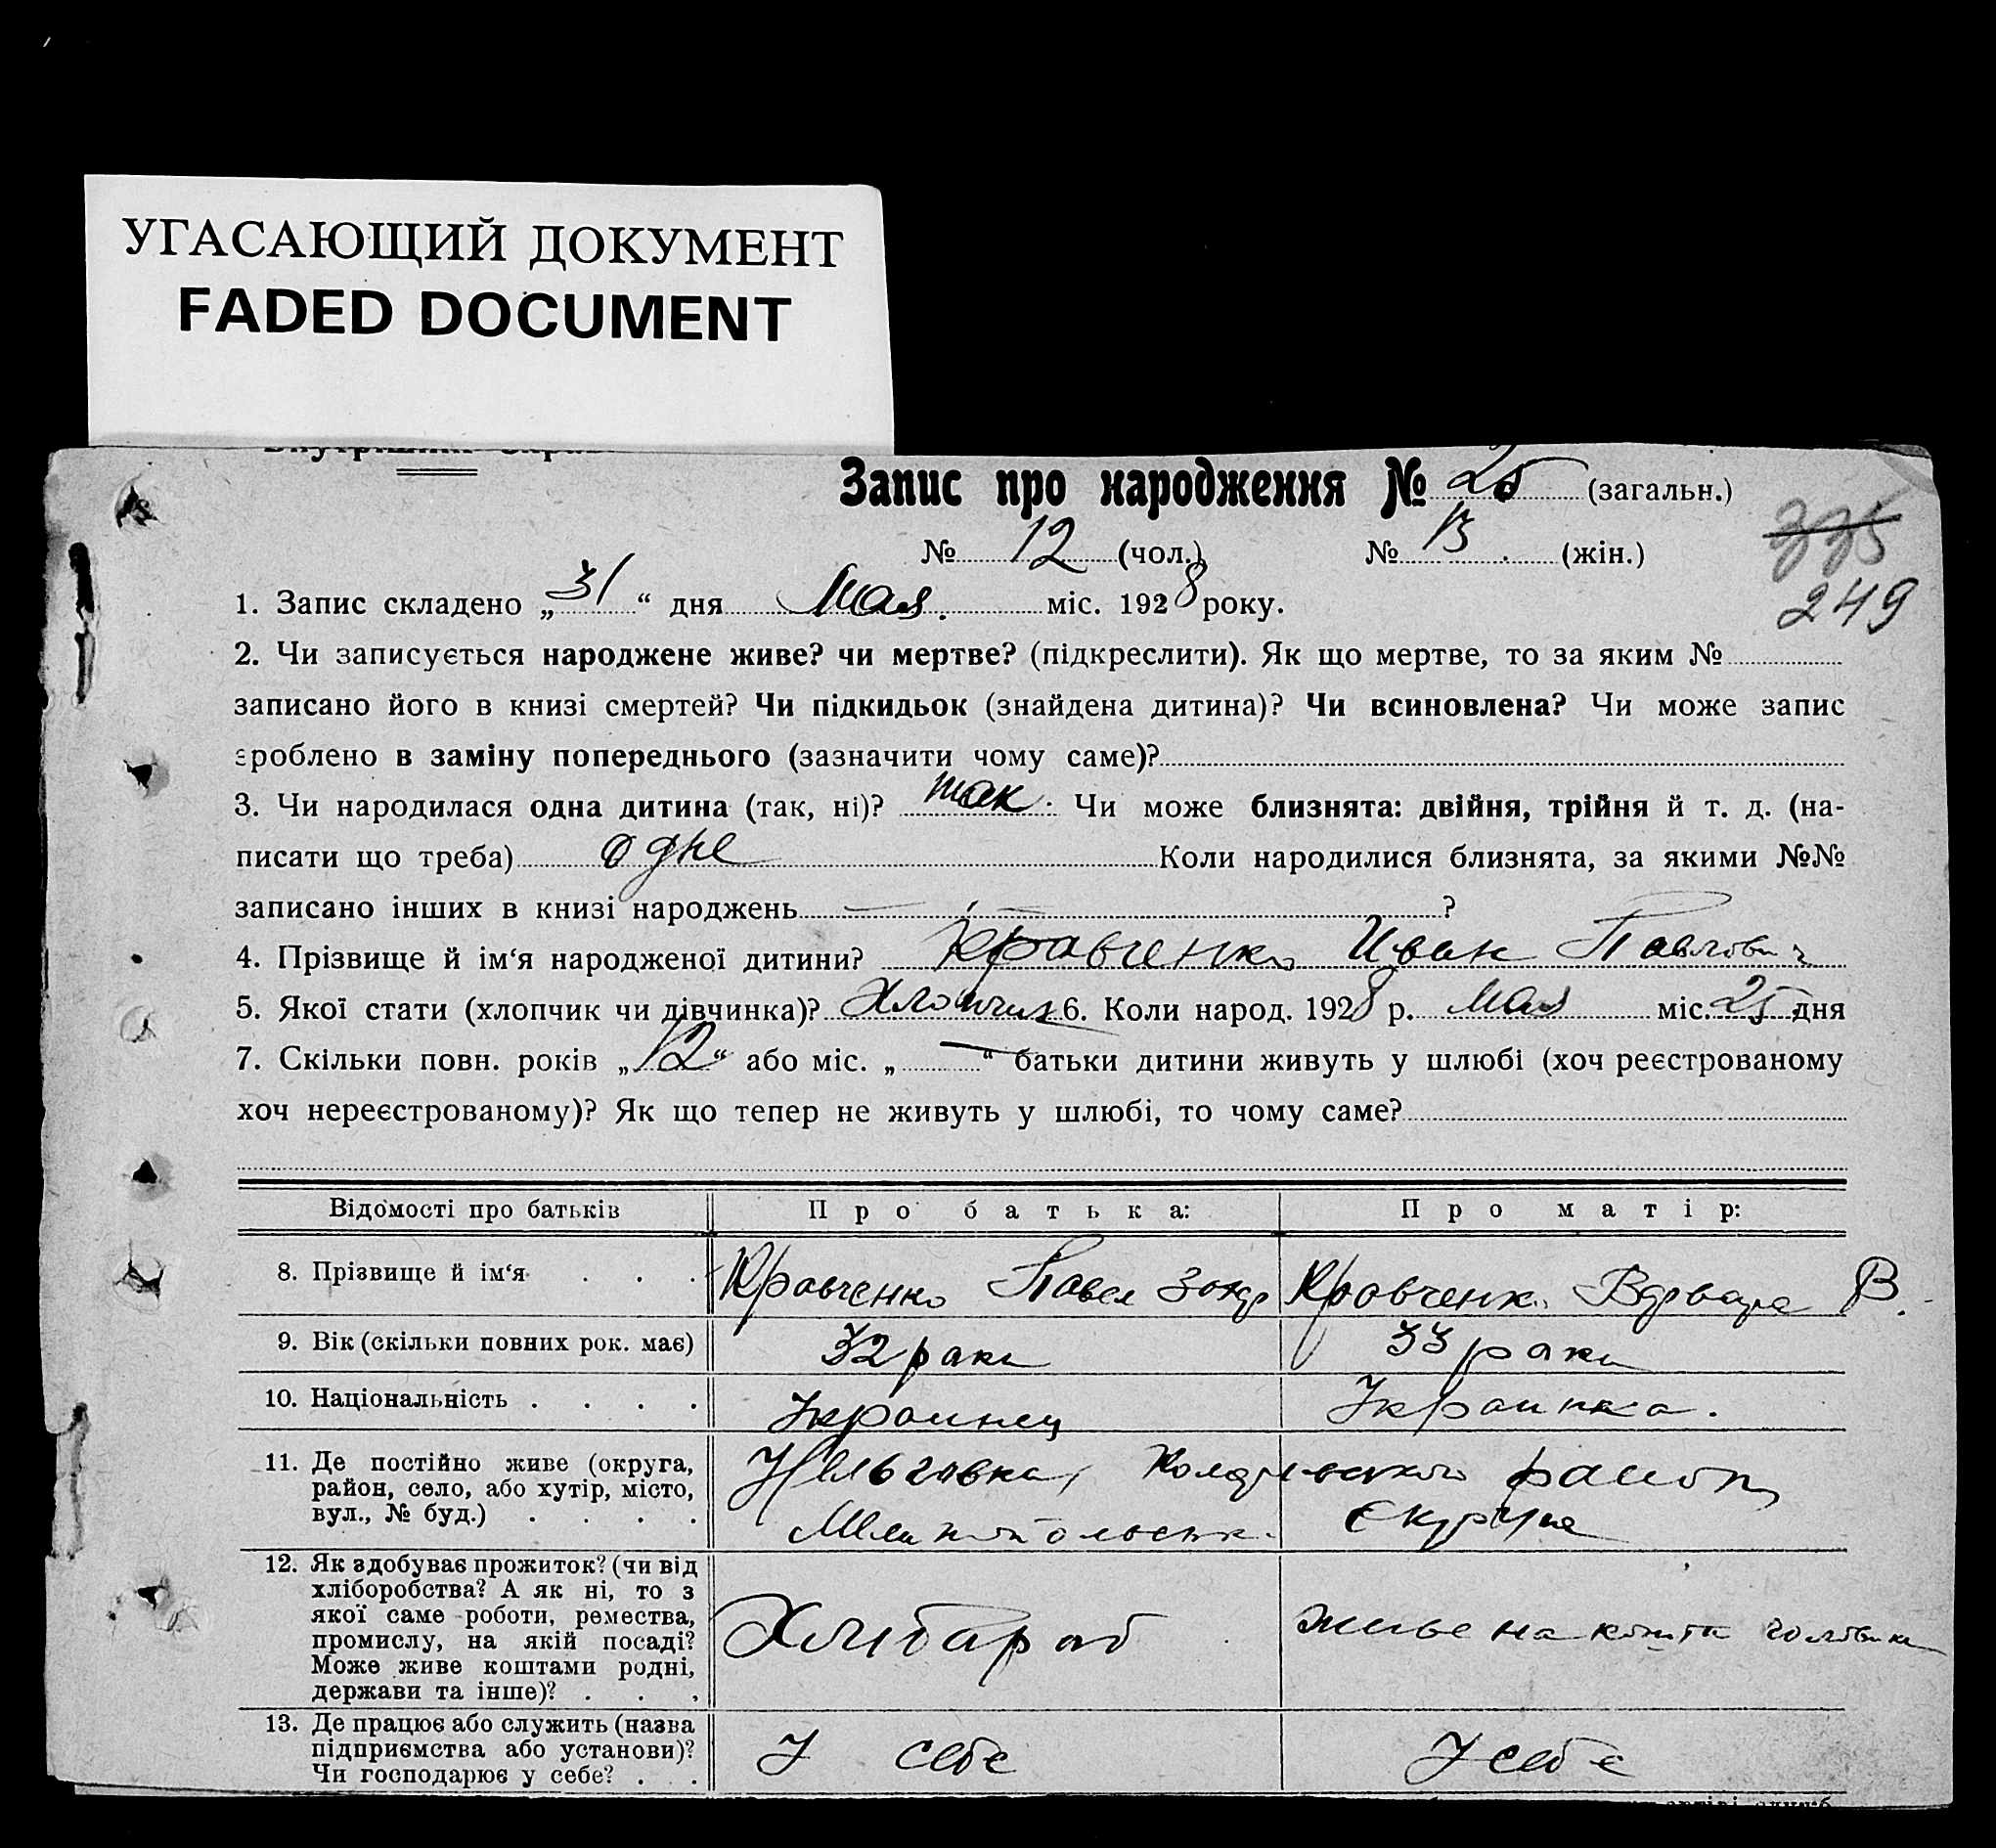 УГАСАЮЩИЙ ДОКУМЕНТ
FADED DOCUMENT
Запис про народження № 25 (загальн.)
№ 12 (чол.) № 13 (жін.)
335
249
1. Запис складено „31“ дня Мая. міс. 1928 року.
2. Чи записується народжене живе? чи мертве? (підкреслити). Як що мертве, то за яким №
записано його в книзі смертей? Чи підкидьок (знайдена дитина)? Чи всиновлена? Чи може запис
зроблено в заміну попереднього (зазначити чому саме)?
3. Чи народилася одна дитина (так, ні)? так. Чи може близнята: двійня, трійня й т. д. (на-
писати що треба) одне Коли народилися близнята, за якими №№
записано інших в книзі народжень — ?
4. Прізвище й ім‘я народженої дитини? Кравченко Иван Павлович
5. Якої стати (хлопчик чи дівчинка)? Хлопчик 6. Коли народ. 1928 р. мая міс. 25 дня
7. Скільки повн. років „12“ або міс. „—“ батьки дитини живуть у шлюбі (хоч реєстрованому
хоч нереєстрованому)? Як що тепер не живуть у шлюбі, то чому саме?
Відомості про батьків Про батька: Про матір:
8. Прізвище й ім‘я . . . Кравченко Павел Кравченко Варвара В.
9. Вік (скільки повних рок. має) 32 рака 33 рака
10. Національність . . . . Украинец Украинка.
11. Де постійно живе (округа,
район, село, або хутір, місто,
вул., № буд.) . . . .
Нельговка, район
Мелитопольськ.
12. Як здобуває прожиток? (чи від
хліборобства? А як ні, то з
якої саме роботи, ремества,
промислу, на якій посаді?
Може живе коштами родні,
держави та інше)? . . .
Хлибароб живе на кошти чоловика
13. Де працює або служить (назва
підприємства або установи)?
Чи господарює у себе? . .
У себе У себе